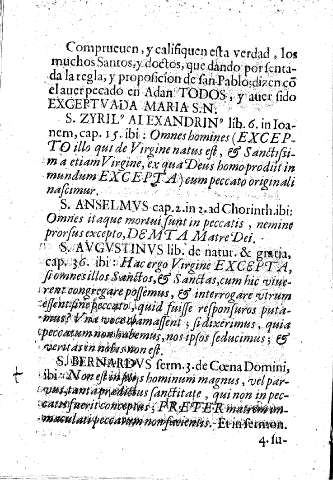 Comprueuen, y califiquen esta verdad, los
muchos Santos, y doctos, que dando por senta-
da la regla, y proposicion de san Pablo; dizen cõ
el auer pecado en Adan TODOS, y auer sido
EXCEPTVADA MARIA S.N.
S. ZYRIL° ALEXANDRIN° lib. 6. in Ioa-
nem, cap. 15. ibi: Omnes homines (EXCEP-
TO illo qui de Virgine natus est, & Sanctissi-
ma etiam Virgine, ex qua Deus homo prodiit in
mundum EXCEPTA) cum peccato originali
nascimur.
S. ANSELMVS cap. 2. in 2. ad Chorinth. ibi:
Omnes itaque mortui sunt in peccatis, nemine
prorsus excepto, DEMTA Matre Dei.
S. AVGVSTINVS lib. de natur. & gratia,
cap. 36. ibi: Hac ergo Virgine EXCEPTA,
si omnes illos Sanctos, & Sanctas, cum hic viue-
rent congregare possemus, & interrogare vtrum
essent sine peccato, quid fuisse responsuros puta-
mus? Vna voce clamassent; si dixerimus, quia
peccatum non habemus, nos ipsos seducimus; &
veritas in nobis non est.
S. BERNARDVS serm. 3. de Cœna Domini,
ibi: Non est in hominum magnus, vel par-
vus, tanta præditus sanctitate, qui non in pec-
catis fuerit conceptus; PRETER matrem im-
maculati peccatum non facientis. Et in sermon.
4. su-